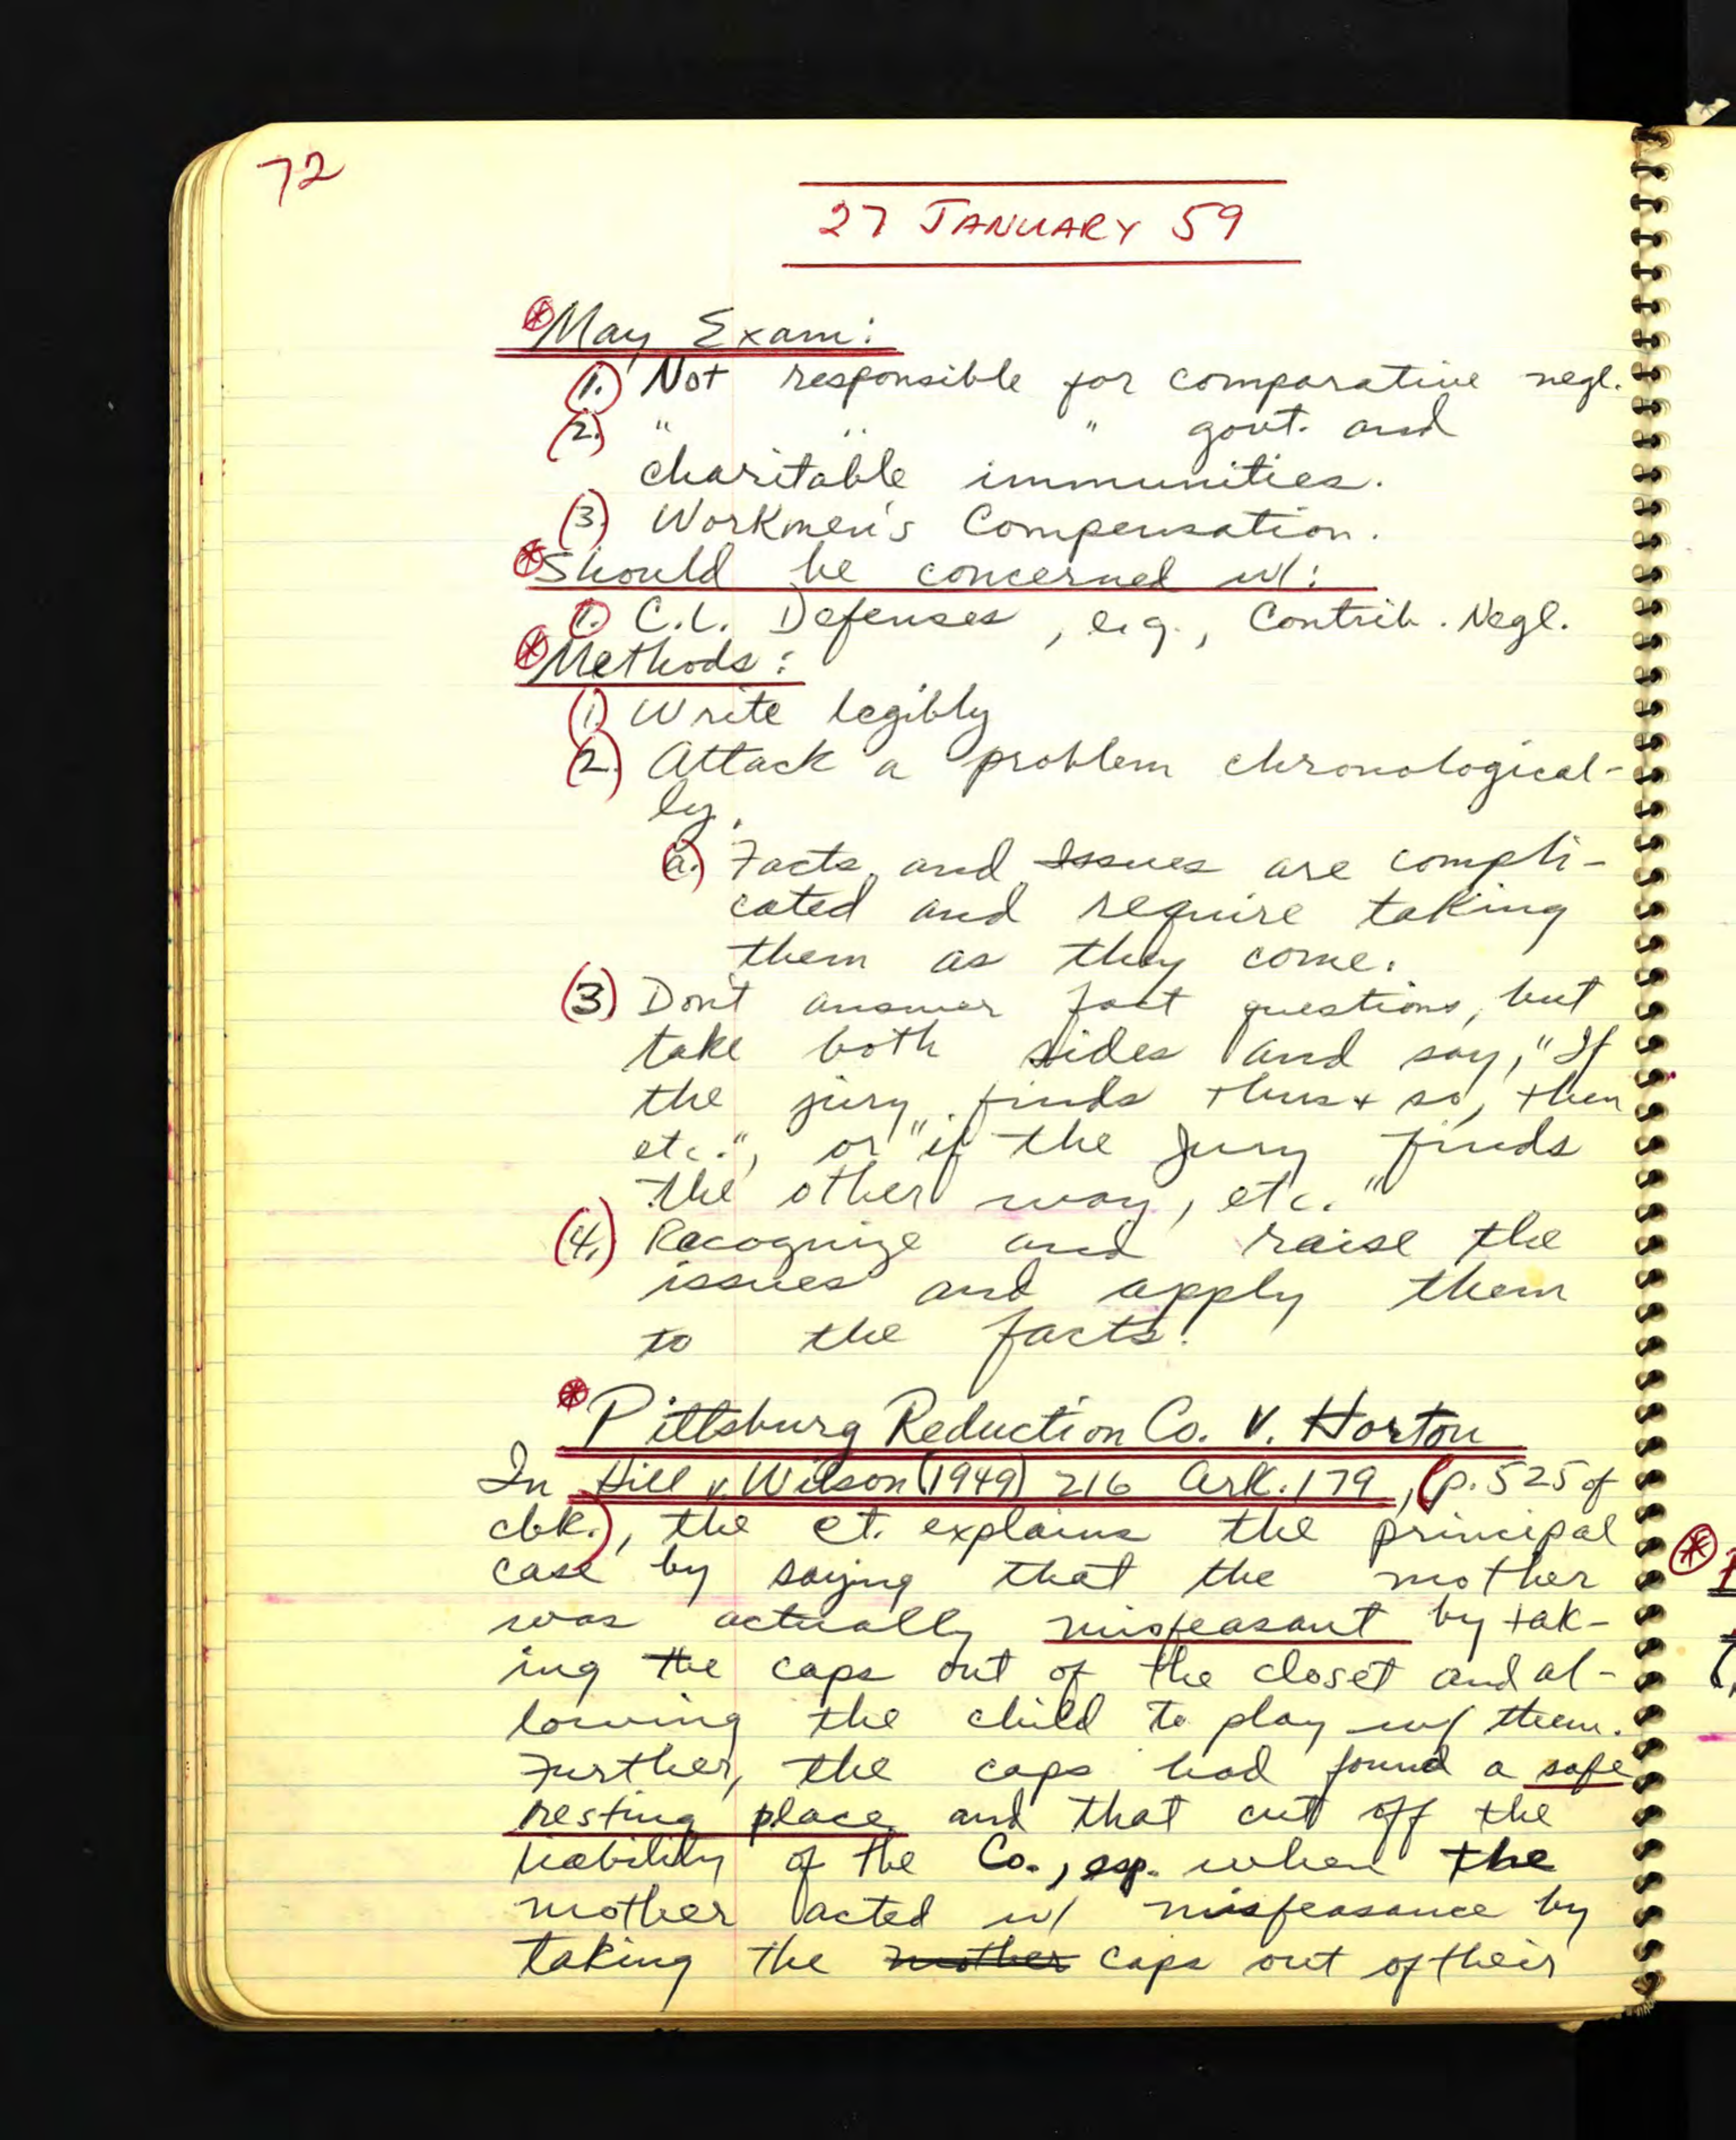 72
27 JANUARY 59
⊛May Exam:
(1.) Not responsible for comparative negl.
(2.) " " " govt. and
charitable immunities.
(3.) Workmen's Compensation.
⊛Should be concerned w/:
(1.) C.L. Defenses, e.g., Contrib. Negl.
⊛Methods:
(1.) Write legibly
(2.) Attack a problem chronological-
ly.
(a.) Facts and Issues are compli-
cated and require taking
them as they come.
(3.) Don't answer fact questions, but
take both sides and say, "If
the jury finds thus + so, then
etc.", or "if the jury finds
the other way, etc."
(4.) Recognize and raise the
issues and apply them
to the facts.
⊛Pittsburg Reduction Co. v. Horton
In Hill v. Wilson (1949) 216 Ark. 179, (p. 525 of
cbk.), the ct. explains the principal
case by saying that the mother
was actually misfeasant by tak-
ing the caps out of the closet and al-
lowing the child to play w/ them.
Further, the caps had found a safe
resting place and that cut off the
liability of the Co., esp. when the
mother acted w/ misfeasance by
taking the mother caps out of their